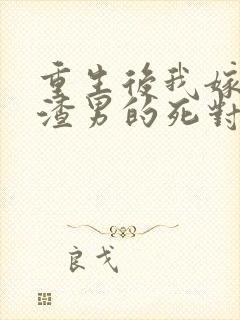 重生後我嫁
渣男的死對
良戈